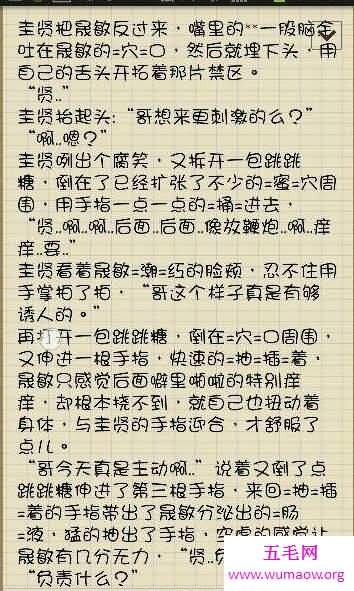 圭贤把晟敏反过来，嘴里的**一股脑全
吐在晟敏的=穴=口，然后就埋下头，用
自己的舌头开拓着那片禁区。
“贤..”
圭贤抬起头:“哥想来更刺激的么？”
“啊..嗯？”
圭贤咧出个腐笑，又拆开一包跳跳
糖，倒在了已经扩张了不少的=蜜=穴周
围，用手指一点一点的=捅=进去，
“贤..啊..啊..后面..后面..像放鞭炮..啊..痒
痒..要..”
圭贤看着晟敏=潮=红的脸颊，忍不住用
手掌拍了拍，“哥这个样子真是有够
诱人的。”
再 开一包跳跳糖，倒在=穴=口周围，
又伸进一根手指，快速的=抽=插=着，
晟敏只感觉后面噼里啪啦的特别痒
痒，却根本挠不到，就自己也扭动着
身体，与圭贤的手指迎合，才舒服了
点儿。
“哥今天真是主动啊..”说着又倒了点
跳跳糖伸进了第三根手指，来回=抽=插
=着的手指带出了晟敏分泌出的=肠
=液，猛的抽出了手指，空虚的感觉让
晟敏有几分无力，“贤..负
“负责什么？”
五毛网
www.wumaow.org